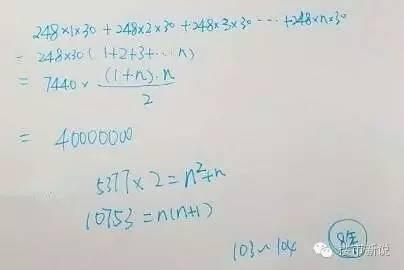 248×1×30 + 248×2×30 +248×3×30 ··· +248×n×30
= 248×30(1+2+3+...n)
= 7440× (1+n).n / 2
= 40000000
5377×2=n²+n
10753=n(n+1)
103~104 8年
楼市新说